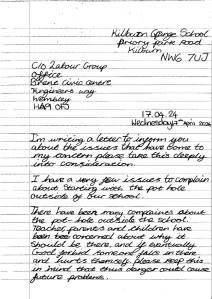 Kilburn Grange School
Priory Park Road
Kilburn
NW6 7UJ
C/O Labour Group
Office
Brent Civic Centre
Engineers way
Wembley
HA9 0FJ
17.04.24
Wednesday 17th April 2024
Im writing a letter to inform you
about the issues that have come to
my concern please take this deeply
into consideration.
I have a very few issues to complain
about starting with the pot hole
outside of our school.
There have been many complaints about
the pot-hole outside the school.
Teacher, parents and children have
been concerned about why it
should be there, and if eventually
God forbid someone falls in there,
and hurts themselves. please keep this
in mind that this danger could cause
future problems.